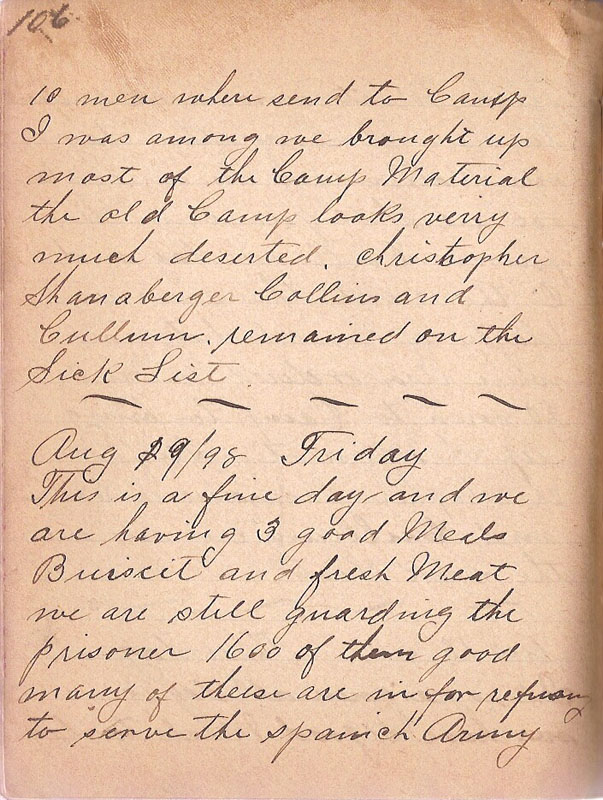 106
10 men where send to Camp
I was among we brought up
most of the Camp Material
the old Camp looks verry
much deserted. Christopher
Shanaberger Collins and
Cullum. remained on the
Sick List.
Aug 19/98 Friday
This is a fine day and we
are having 3 good Meals
Buiscit and fresh Meat
we are still guarding the
prisoner 1600 of them good
many of theese are in for refusing
to serve the spanich Army